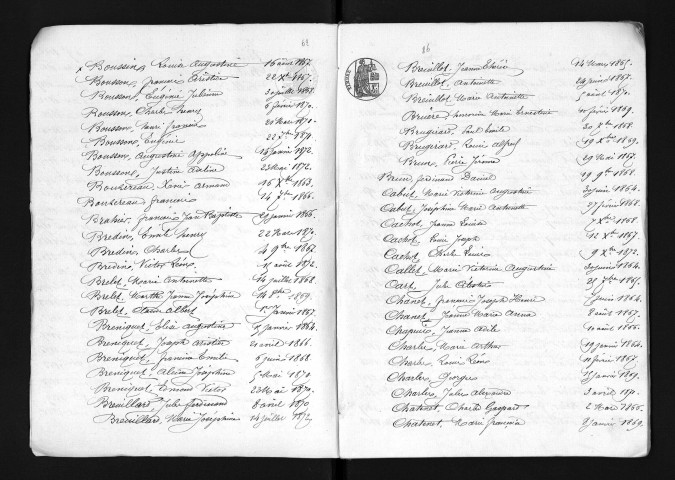 Boussin, Louise Augustine 16 août 1867.
Bousson, François Aristide 22 Xbre 1867.
Bousson, Eugénie Julienne 30 juillet 1868.
Bousson, Charles Henry 6 février 1870.
Bousson, Henri Francis 20 Mai 1870.
Boussons, Eugénie 22 7bre 1871.
Bousson, Augustine 18 janvier 1872.
Boussons, Justine 23 Mai 1872.
Bouvereau, Xavier Armand 16 Xbre 1863.
Bouvereau François 14 7bre 1866.
Brahier, François Jean Baptiste 29 janvier 1866.
Bredin, Emile Henry 22 Mars 1870.
Bredin, Charles 4 9bre 1862.
Bredin, Victor Rémy août 1872.
Brelot, Marie Antoinette 14 juillet 1868.
Brelot, Marthe Jeanne Joséphine 14 1869.
Brelot, Albert janvier 1867.
Breniquet, Elise Augustine janvier 1864.
Breniquet, Joseph Aristide 21 avril 1866.
Breniquet, Francine Emilie 6 juin 1868.
Breniquet, Alexis Joseph 5 Mai 1870
Breniquet, Edmond Victor 23 Mai 1870.
Breuillard, Jules Ferdinand 8 avril 1870
Breuillard, Marie Joséphine 14 juillet 1872.
86
Breuillot, Jeanne 14 Mars 1865.
Breuillot, Antoinette 24 1867.
Breuillot, Marie Antoinette 5 août 1870.
Bruere, Marie Ernestine 10 février 1869.
Brugirard, Paul Emile 30 7bre 1868.
Brugirard, Louis Alfred 19 Xbre 1869.
Brun, Pierre Jérome 29 Mai 1867.
Brun, Ferdinand Daniel 29 9bre 1868.
Cabut, Marie Victorine Augustine 30 juin 1864.
Cabut, Joséphine Marie Antoinette 27 février 1868.
Cachot, Jeanne Louise 7 Xbre 1868.
Cachot, Louis Joseph 12 Xbre 1867.
Cachot, Charles Louis 9 Xbre 1872.
Callet, Marie Victorine Augustine 30 juin 1864.
Cart, Jules 25 7bre 1865.
Chanet, François Joseph Henri 1864.
Chanet, Jeanne Marie Anna 8 août 1867.
Chapuis, Jeanne Adèle 10 août 1866.
Charles, Marie Arthur 19 janvier 1864.
Charles, Louis Rémy 10 février 1867.
Charles, Georges 15 janvier 1869.
Charles, Jules Alexandre 3 avril 1870.
Chatenet, Charles Gaspard 2 Mai 1866.
Chatenet, Marie Françoise 2 janvier 1869.